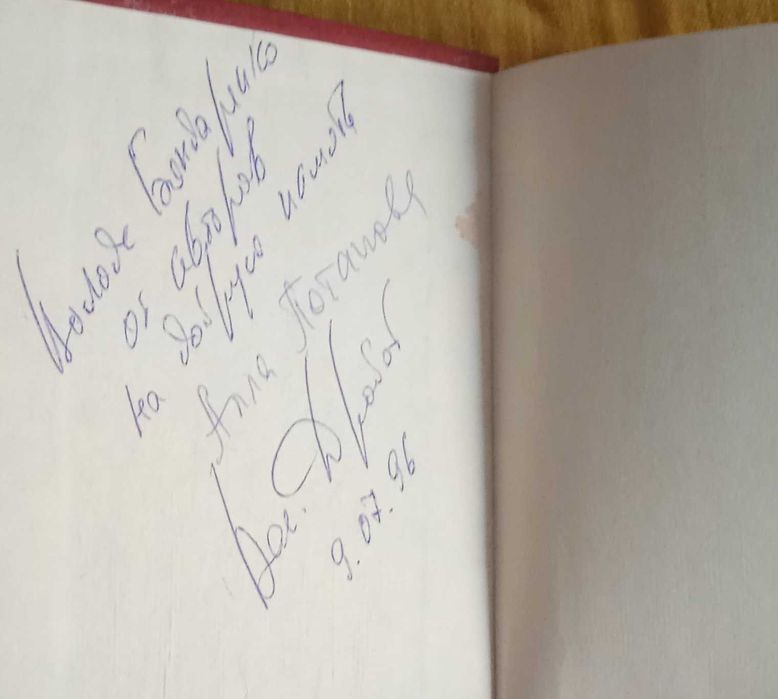 Володе Бондаренко
от авторов
на добрую память
Алла Поташова
Вас. Дробот
9.07.96